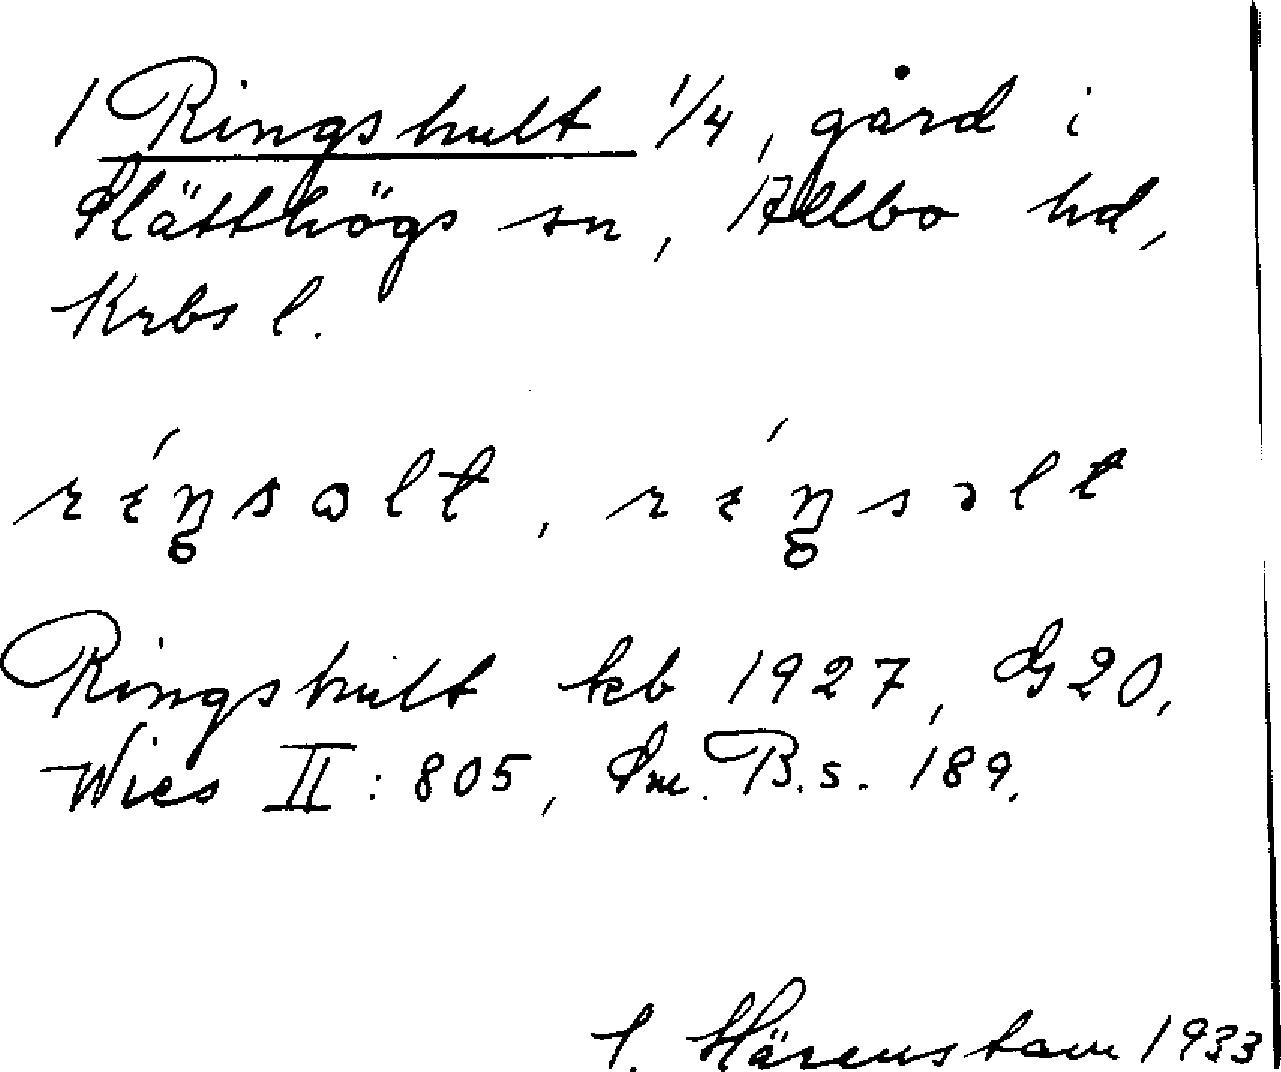 1 Ringshult 1/4, gård i
Slätthögs sn, Allbo hd,
Krbs l.
réŋsalt, réŋsəlt
Ringshult kb 1927, G20,
Wies II: 805, Sm. B. s. 189.
Härenstam 1933